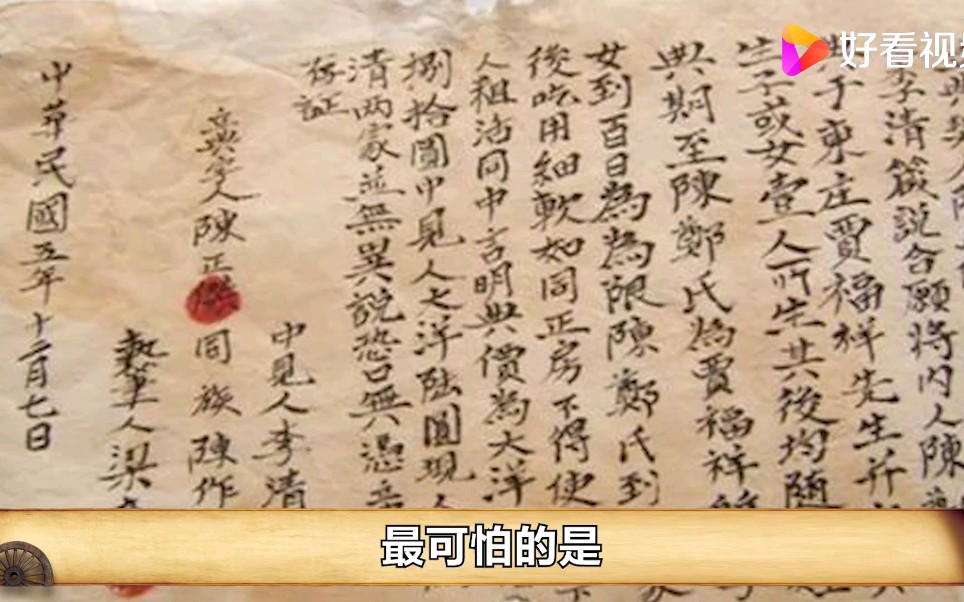 好看视
李清箴説合願將内人陳
于東庄賈福祥先生并
生子或女壹人所生其後均随
典期至陳鄭氏為賈福祥
女到百日為為限陳鄭氏到
後吃用細軟如同正房不得使
人租沾同中言明典價為大洋
捌拾圆中見人七洋陆圆現人
清两家並無異説恐口無憑
存証
中見人李清
典字人陳正 同族陳作
執筆人梁
中華民國五年十二月七日
最可怕的是